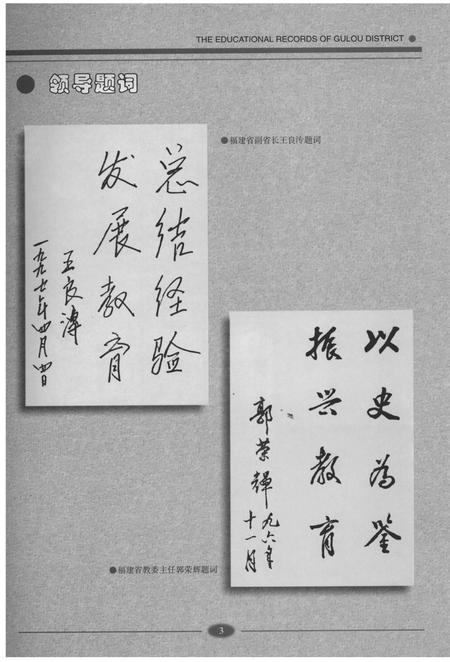 THE EDUCATIONAL RECORDS OF GULOU DISTRICT
领导题词
福建省副省长王良溥题词
总结经验
发展教育
王良溥
一九九七年四月四日
以史為鉴
振兴教育
郭荣輝
九六年
十一月
福建省教委主任郭荣辉题词
3